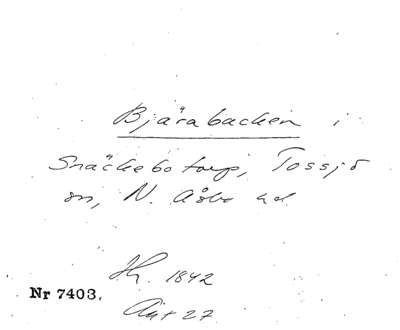 Bjärabacken i
Snäckebotorp, Tossjö
sn, N. Åsbo hd
Jh. 1842
Nr 7403.
Akt 27